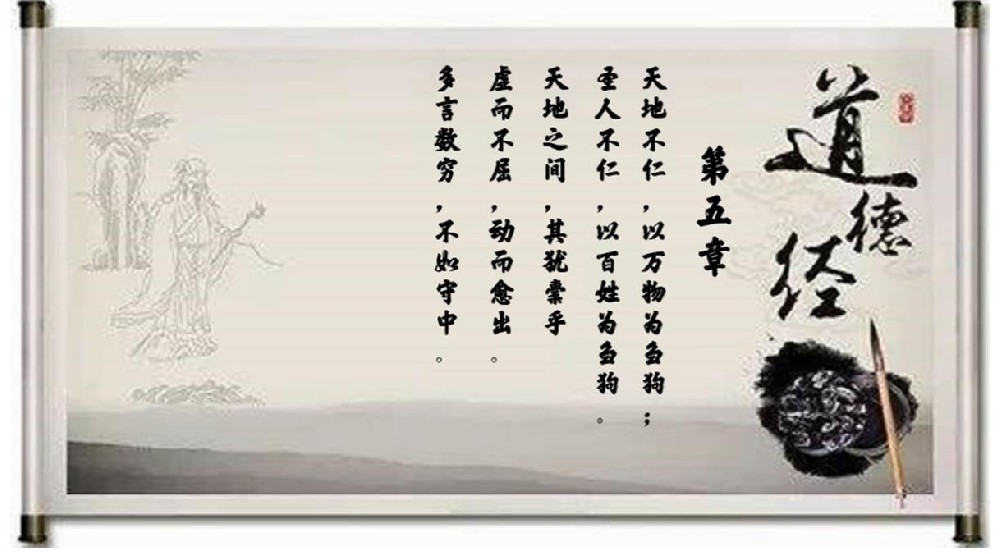 道德经
第五章
天地不仁，以万物为刍狗；
圣人不仁，以百姓为刍狗。
天地之间，其犹橐乎
虚而不屈，动而愈出。
多言数穷，不如守中。